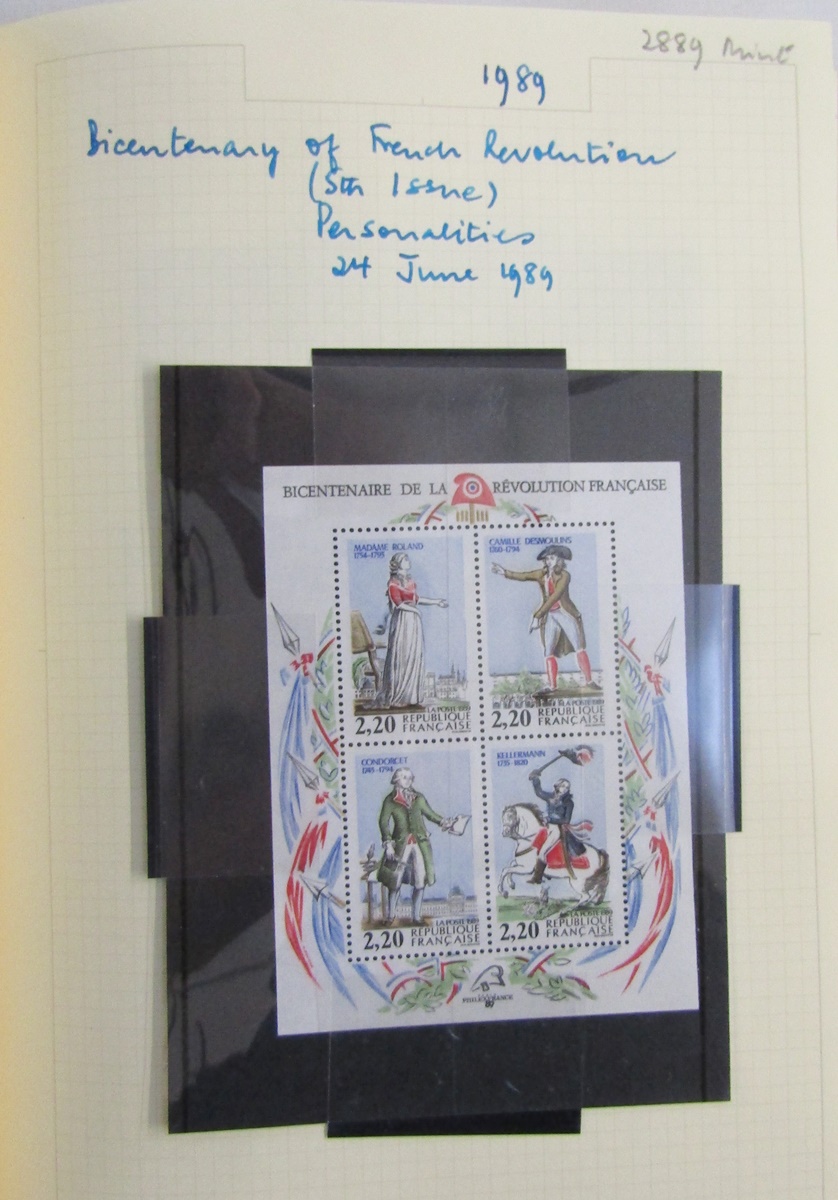 2889 Mint
1989
Bicentenary of French Revolution
(5th Issue)
Personalities
24 June 1989
BICENTENAIRE DE LA RÉVOLUTION FRANÇAISE
MADAME ROLAND
1754-1793
CAMILLE DESMOULINS
1760-1794
LA POSTE 1989
2,20 RÉPUBLIQUE
FRANÇAISE
LA POSTE 1989
2,20 RÉPUBLIQUE
FRANÇAISE
CONDORCET
1743-1794
KELLERMANN
1735-1820
LA POSTE 1989
2,20 RÉPUBLIQUE
FRANÇAISE
LA POSTE 1989
2,20 RÉPUBLIQUE
FRANÇAISE
PHILEXFRANCE
89